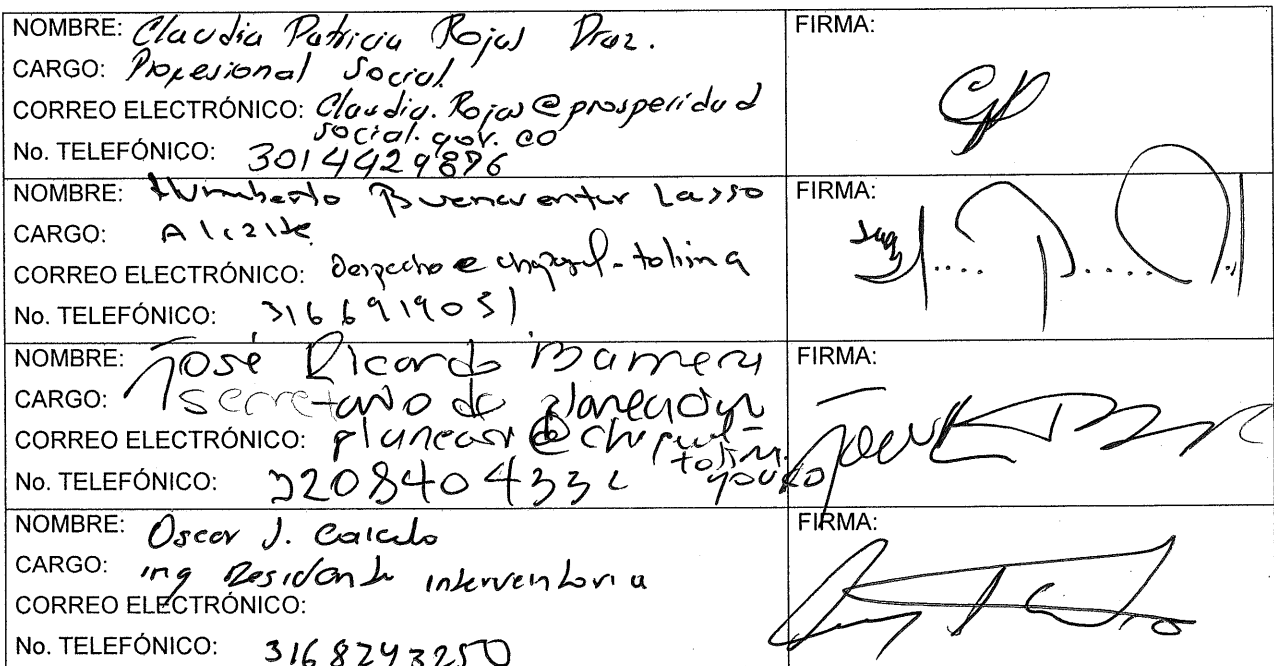 NOMBRE: Claudia Patricia Rojas Diaz.
FIRMA:
CARGO: Profesional Social
CORREO ELECTRÓNICO: Claudia.Rojas@prosperidad
social.gov.co
No. TELEFÓNICO: 30144429876
NOMBRE: Humberto Buenaventur Lasso
FIRMA:
CARGO: Alcalde
CORREO ELECTRÓNICO: Despacho e chaparral-tolima
No. TELEFÓNICO: 3166919051
NOMBRE: José Ricardo
FIRMA:
CARGO: Secretario de planeación
CORREO ELECTRÓNICO:
No. TELEFÓNICO: 320840433
NOMBRE: Oscar J.
FIRMA:
CARGO: ing Residente interventoria
CORREO ELECTRÓNICO:
No. TELEFÓNICO: 3168243250